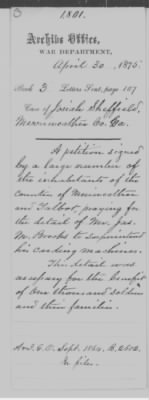 1801.
Archive Office,
WAR DEPARTMENT,
April 30, 1875.
Book 3 Letters Sent, page 107
Case of Josiah Sheffield,
Merriweather Co. Ga.
A petition signed
by a large number of
the inhabitants of the
counties of Merriweather
and Talbot, praying for
the detail of Mr. Jas.
M. Brooks to superintend
his carding machines.
The detail was
necessary for the benefit
of one thousand soldiers
and their families.
Sept. 1864.
In file.